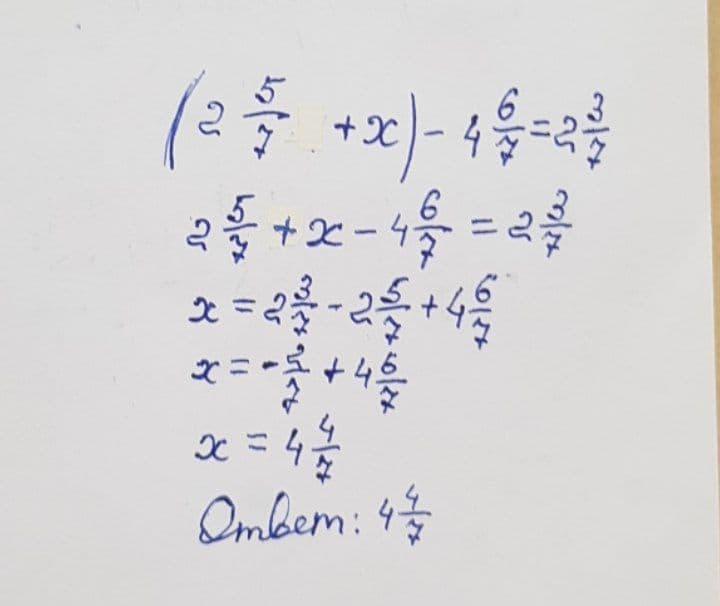 (2 5/7 + x) - 4 6/7 = 2 3/7
2 5/7 + x - 4 6/7 = 2 3/7
x = 2 3/7 - 2 5/7 + 4 6/7
x = - 2/7 + 4 6/7
x = 4 4/7
Ответ: 4 4/7